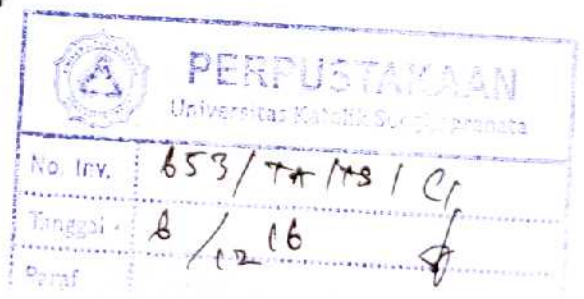 PERPUSTAKAAN
Universitas Katolik Soegijapranata
No. Inv. 653/TA/TS/C1
Tanggal 6/12 16
Paraf